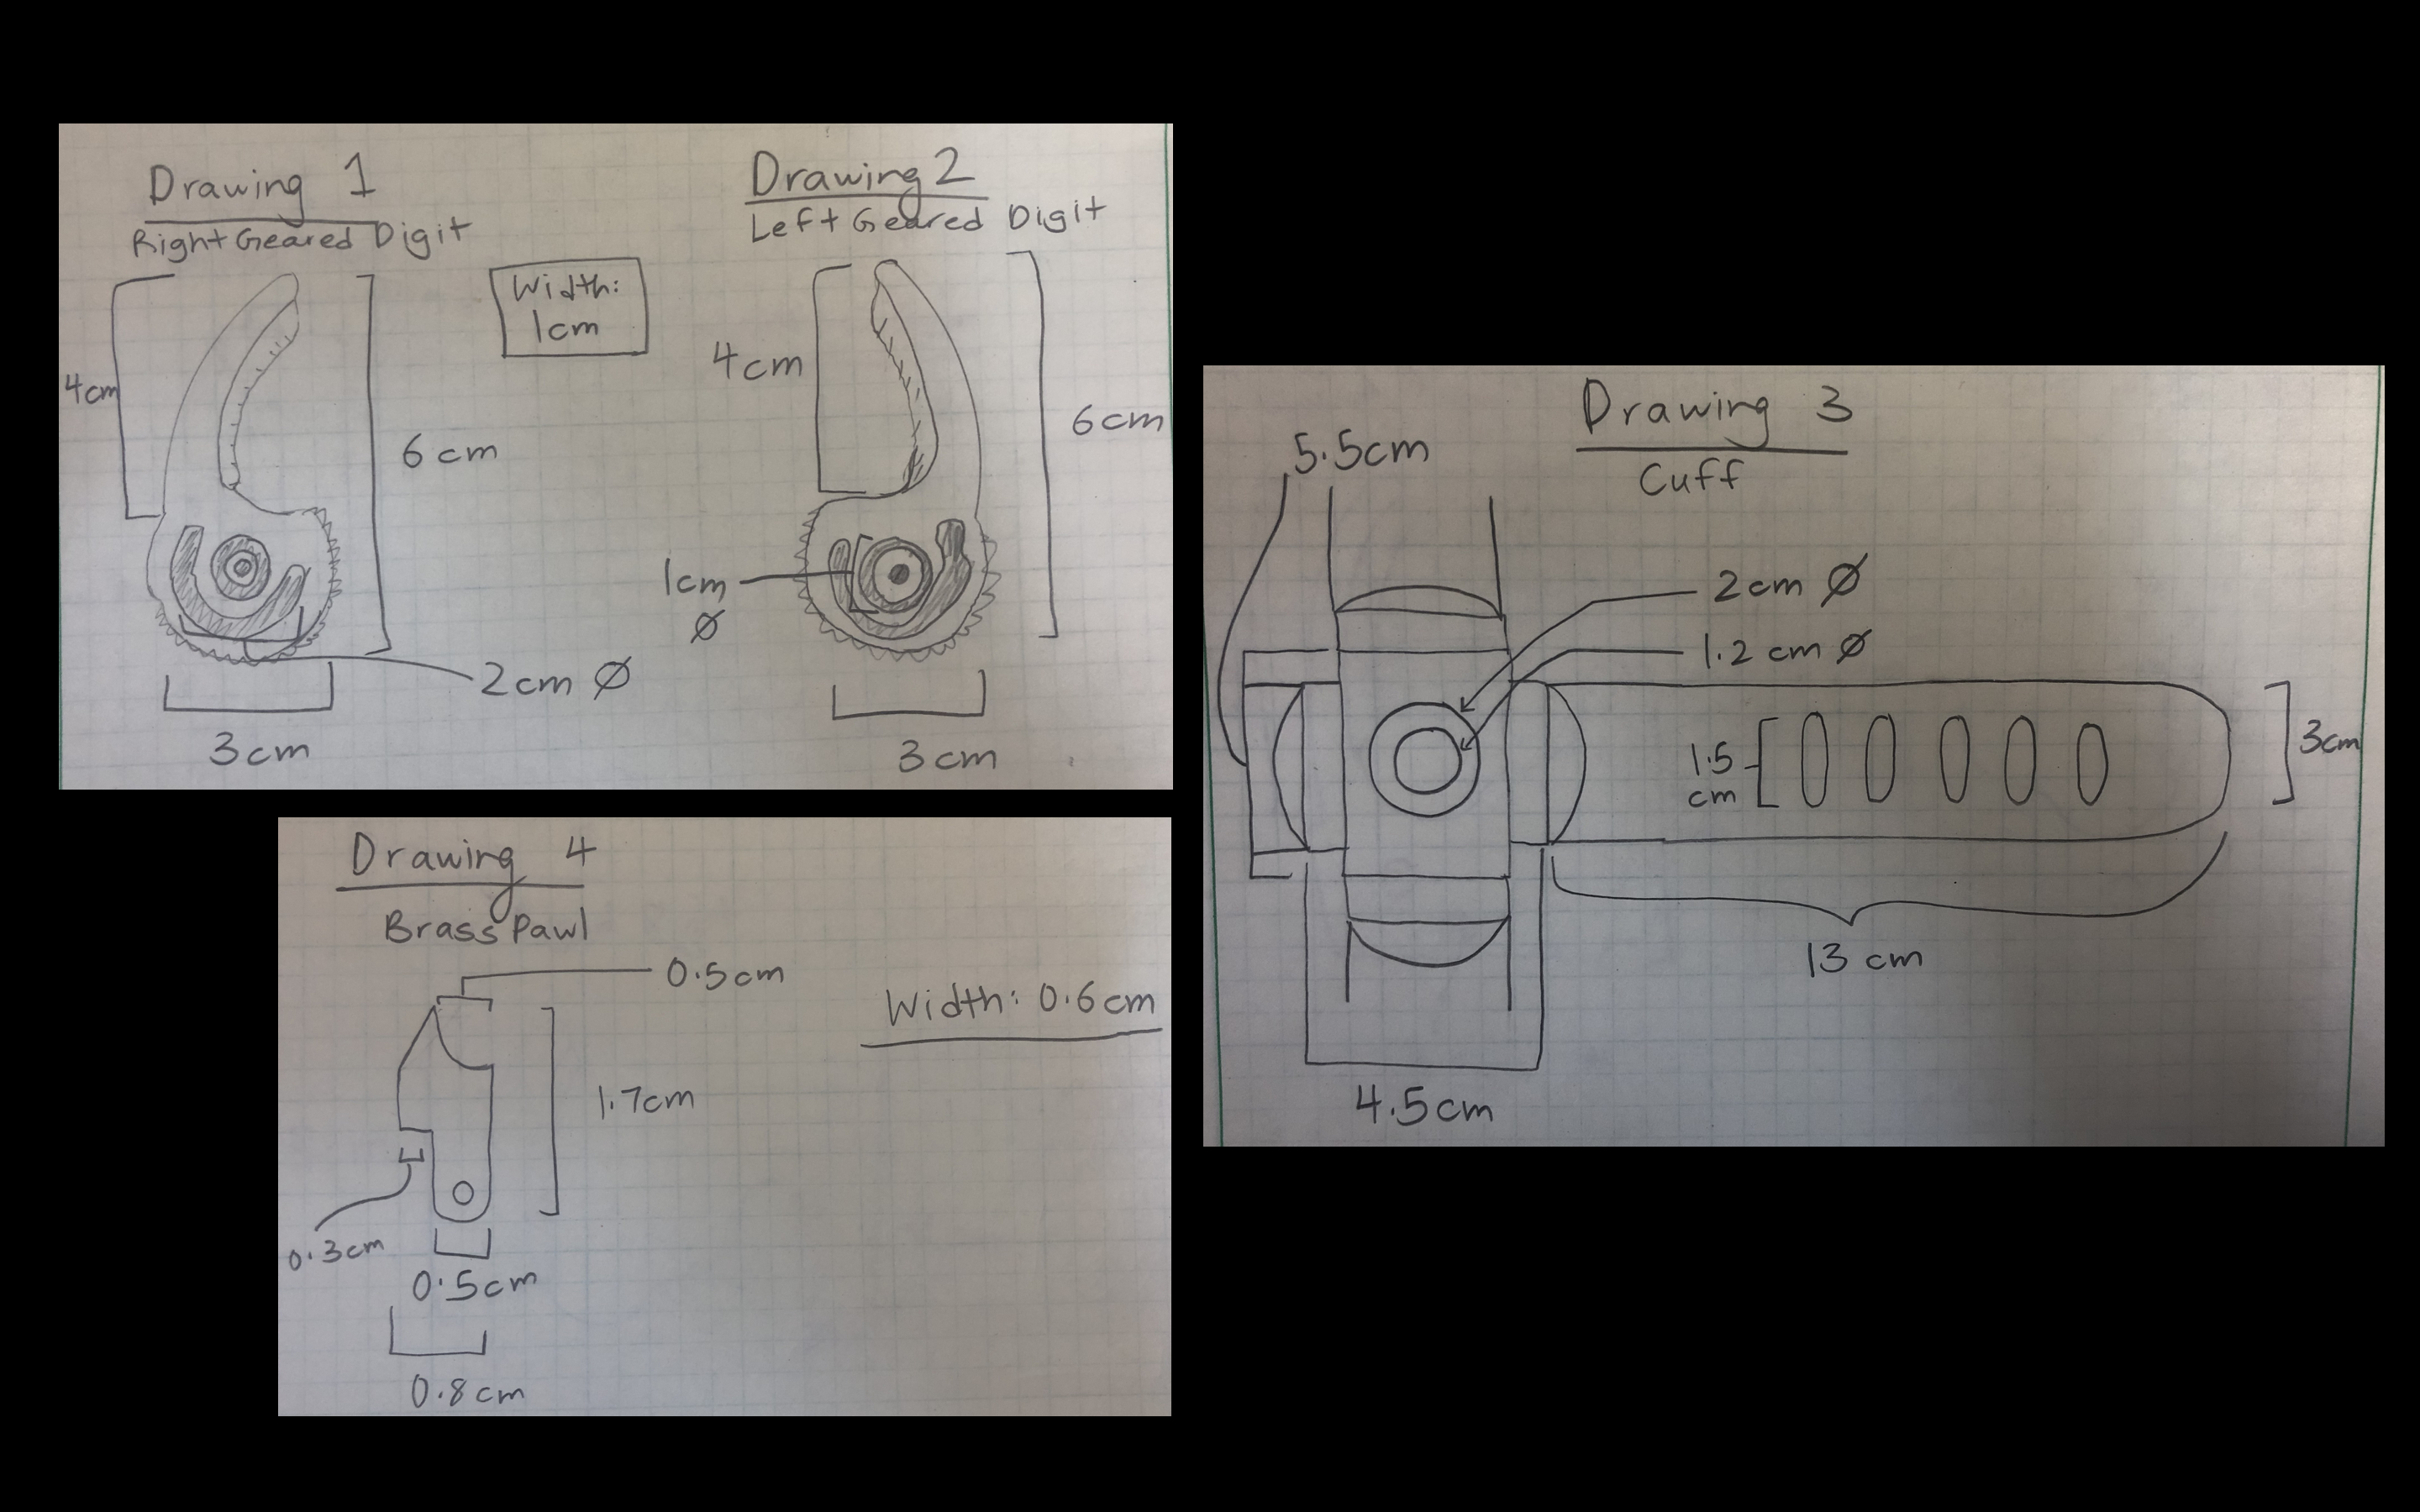 Drawing 1
Right Geared Digit
4cm
6 cm
2cm Ø
3cm
Width:
1cm
Drawing 2
Left Geared Digit
4cm
6cm
1cm
Ø
3cm
Drawing 3
Cuff
5.5cm
2cm Ø
1.2 cm Ø
1.5
cm
3cm
13 cm
4.5cm
Drawing 4
Brass Pawl
0.5cm
Width: 0.6cm
1.7cm
0.3cm
0.5cm
0.8cm